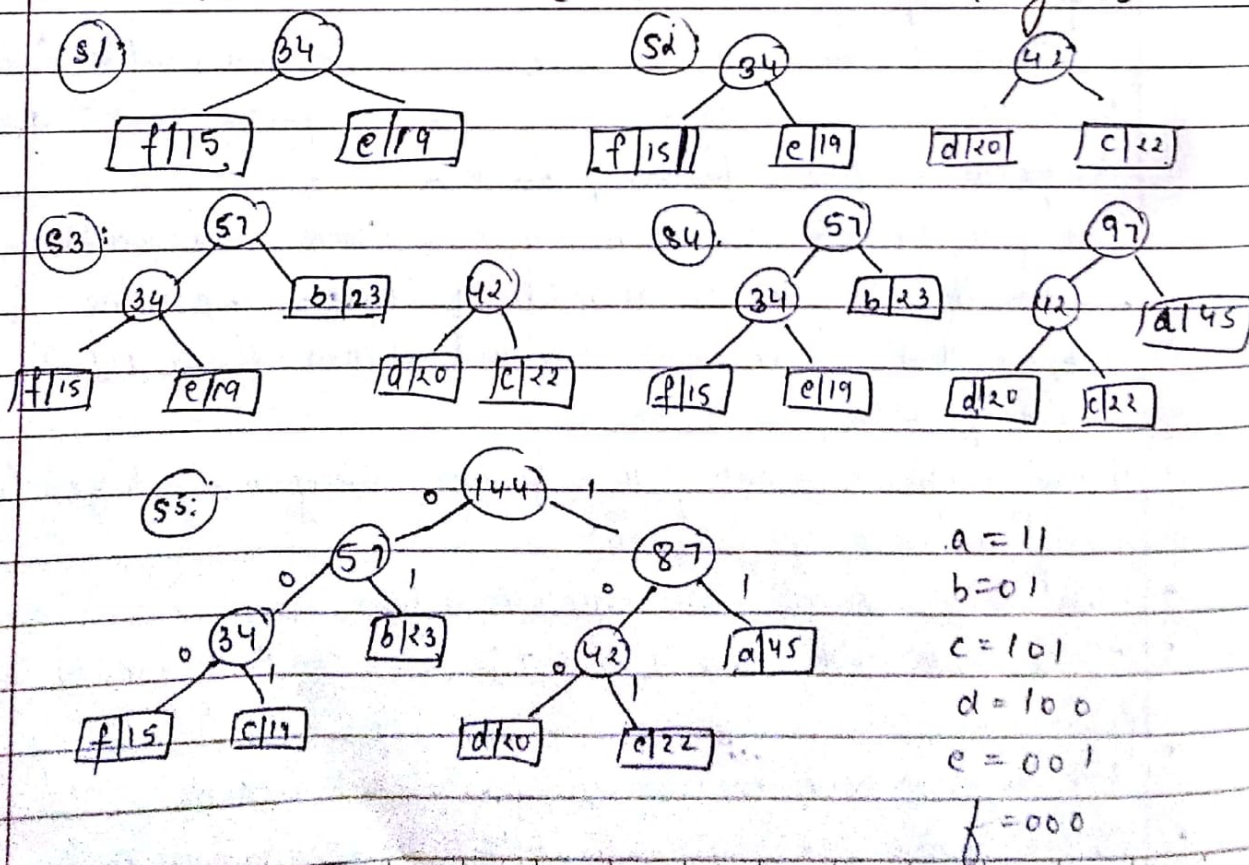 S1: 34
f|15 e|19
S2: 34 42
f|15 e|19 d|20 c|22
S3: 57
34 b|23 42
f|15 e|19 d|20 c|22
S4: 57 97
34 b|23 42 a|45
f|15 e|19 d|20 c|22
S5: 144
0 1
57 87
0 1 0 1
34 b|23 42 a|45
0 1 0 1
f|15 e|19 d|20 c|22
a = 11
b = 01
c = 101
d = 100
e = 001
f = 000